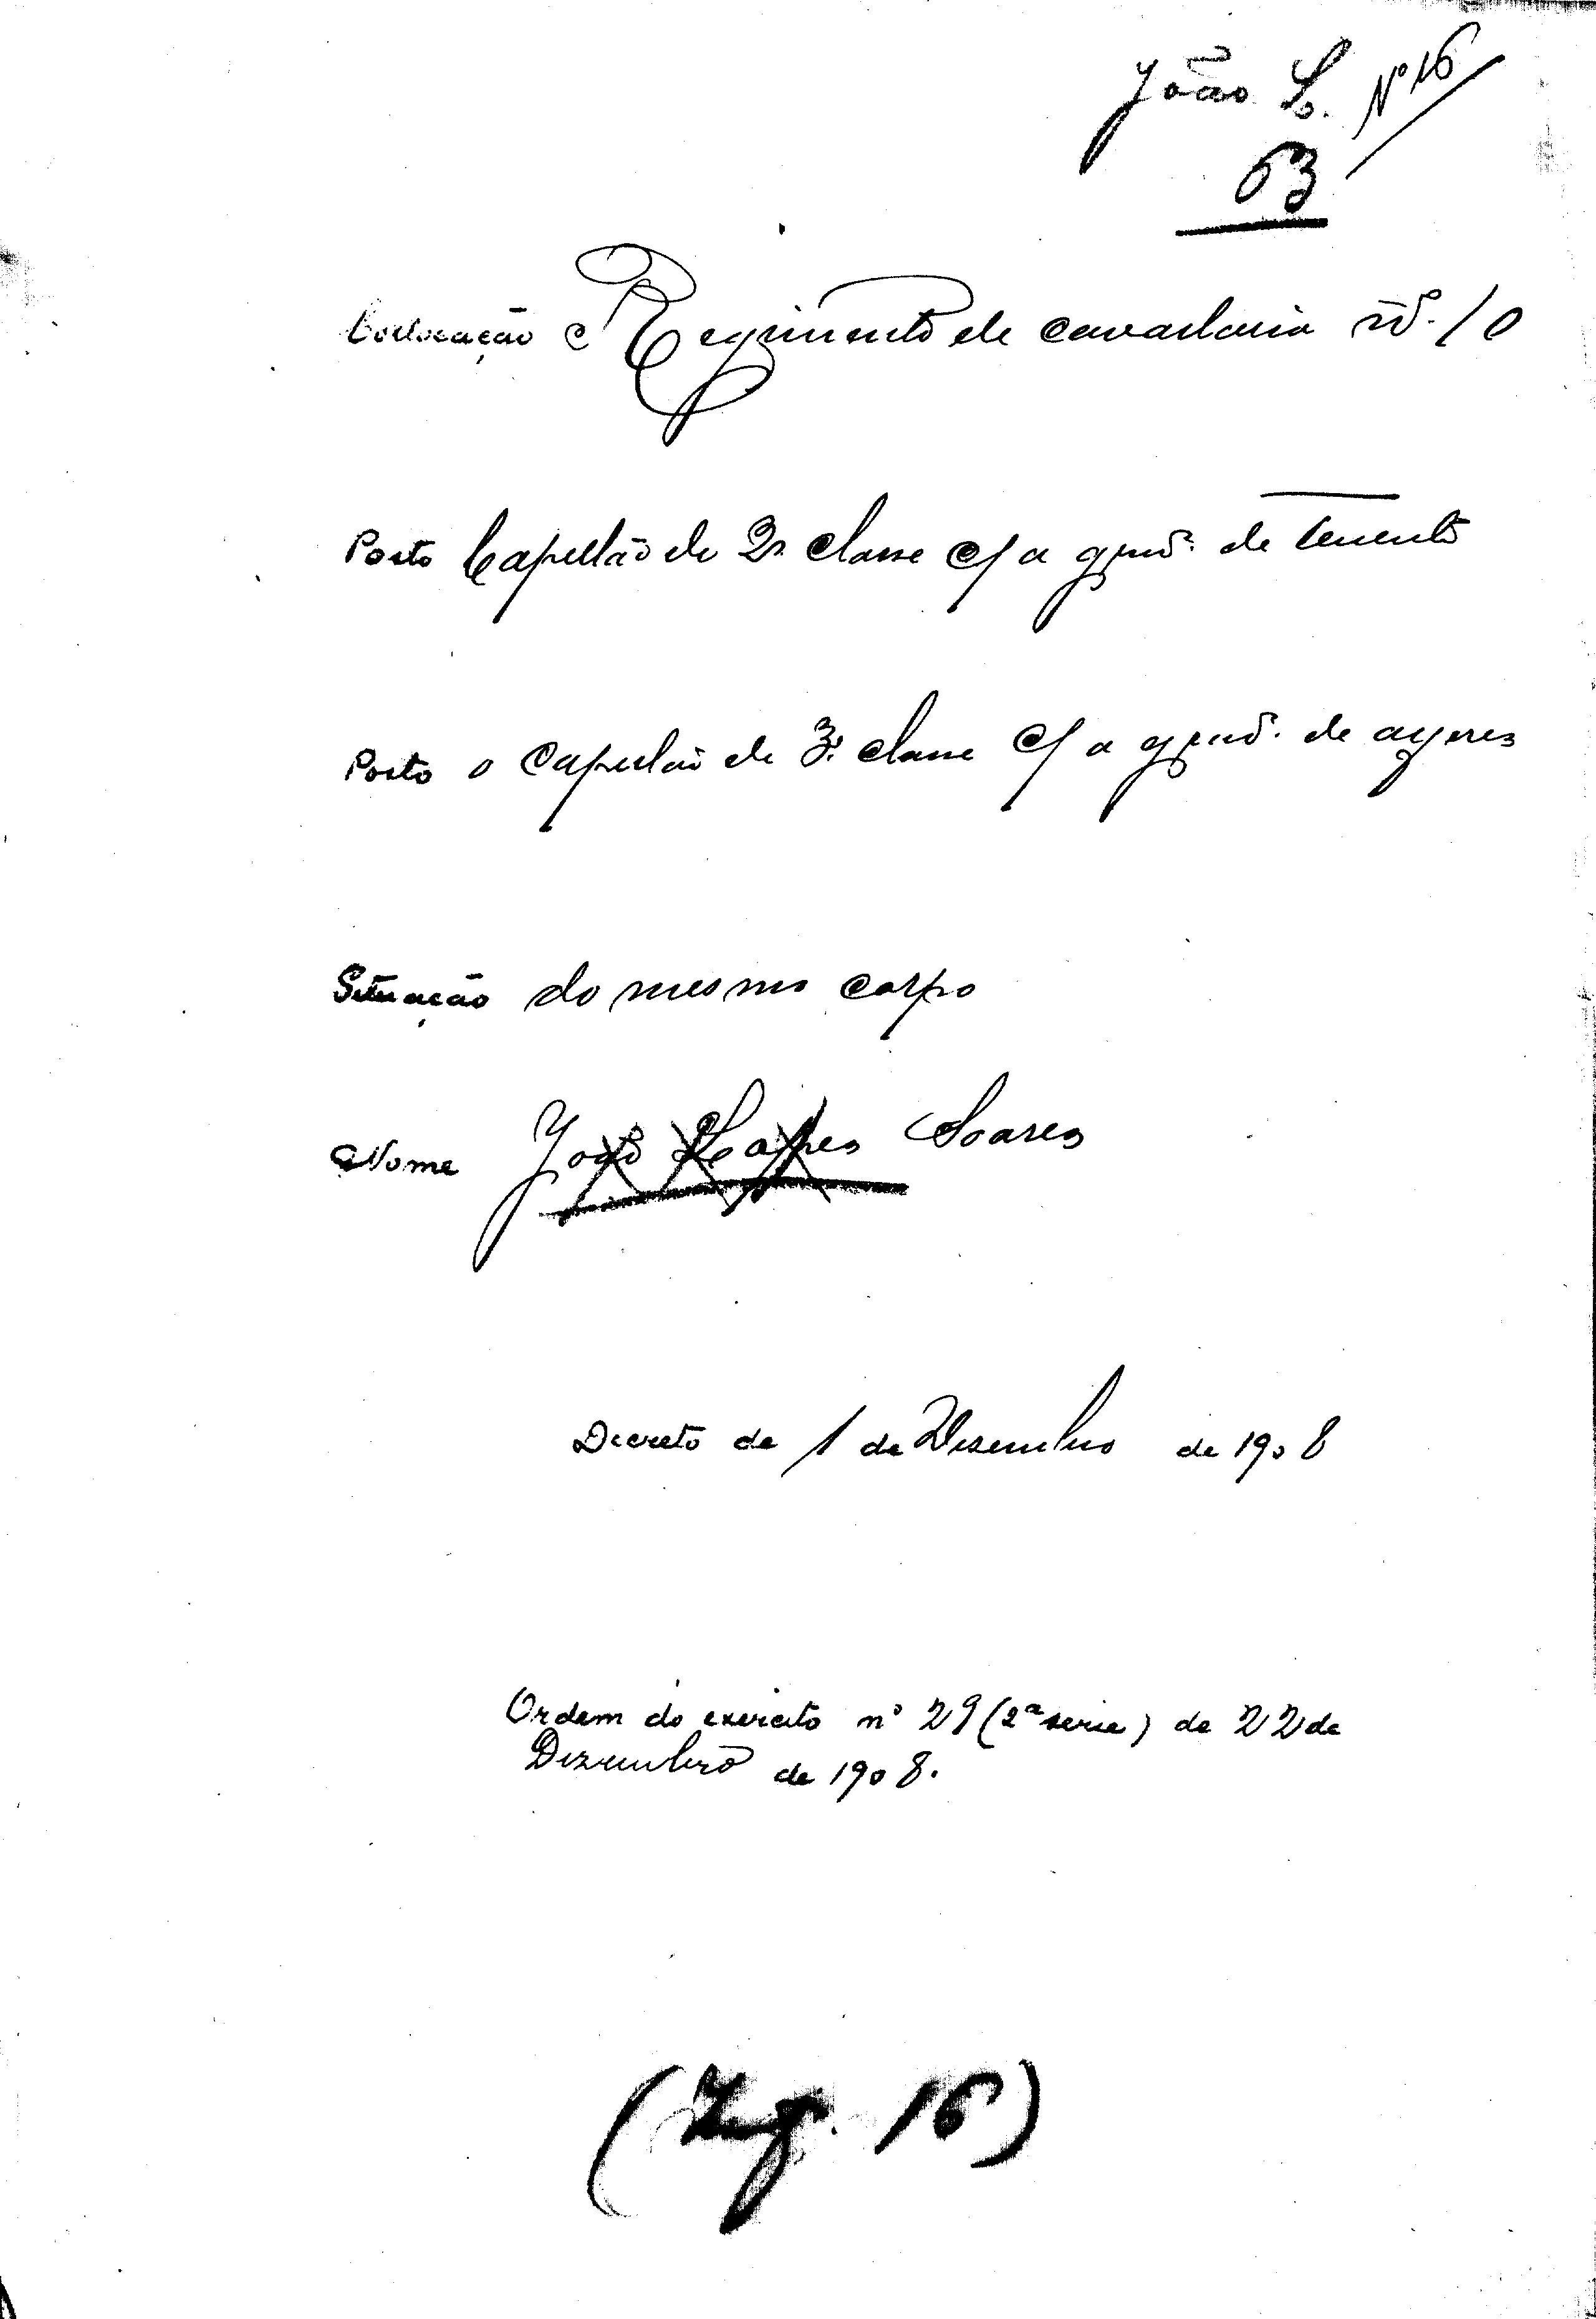 João S. Nº 16
63
Collocação Regimento de cavallaria nº. 10
Posto Capellão de 2ª classe c/ a grad. de tenente
Posto o capellão de 3ª classe c/ a grad. de alferes
Situação do mesmo corpo
Nome João Lopes Soares
Decreto de 1 de Dezembro de 1908
Ordem do exercito nº 29 (2ª serie) de 22 de
Dezembro de 1908.
16)